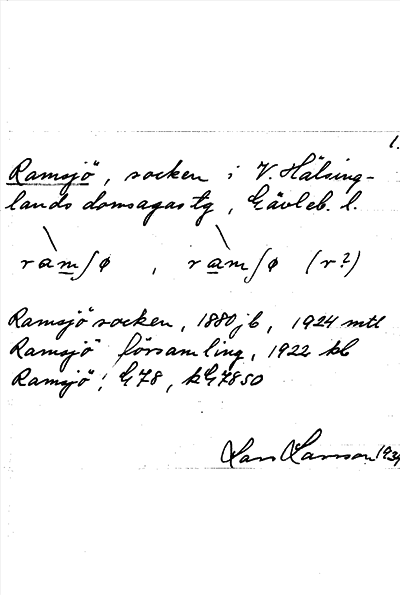 1.
Ramsjö, socken i V. Hälsing-
lands domsagas tg, Gävleb. l.
ràmʃø, ràmʃø (r?)
Ramsjö socken, 1880 jb, 1924 mtl
Ramsjö församling, 1922 kb
Ramsjö, G78, kG7850
Lars Larsson